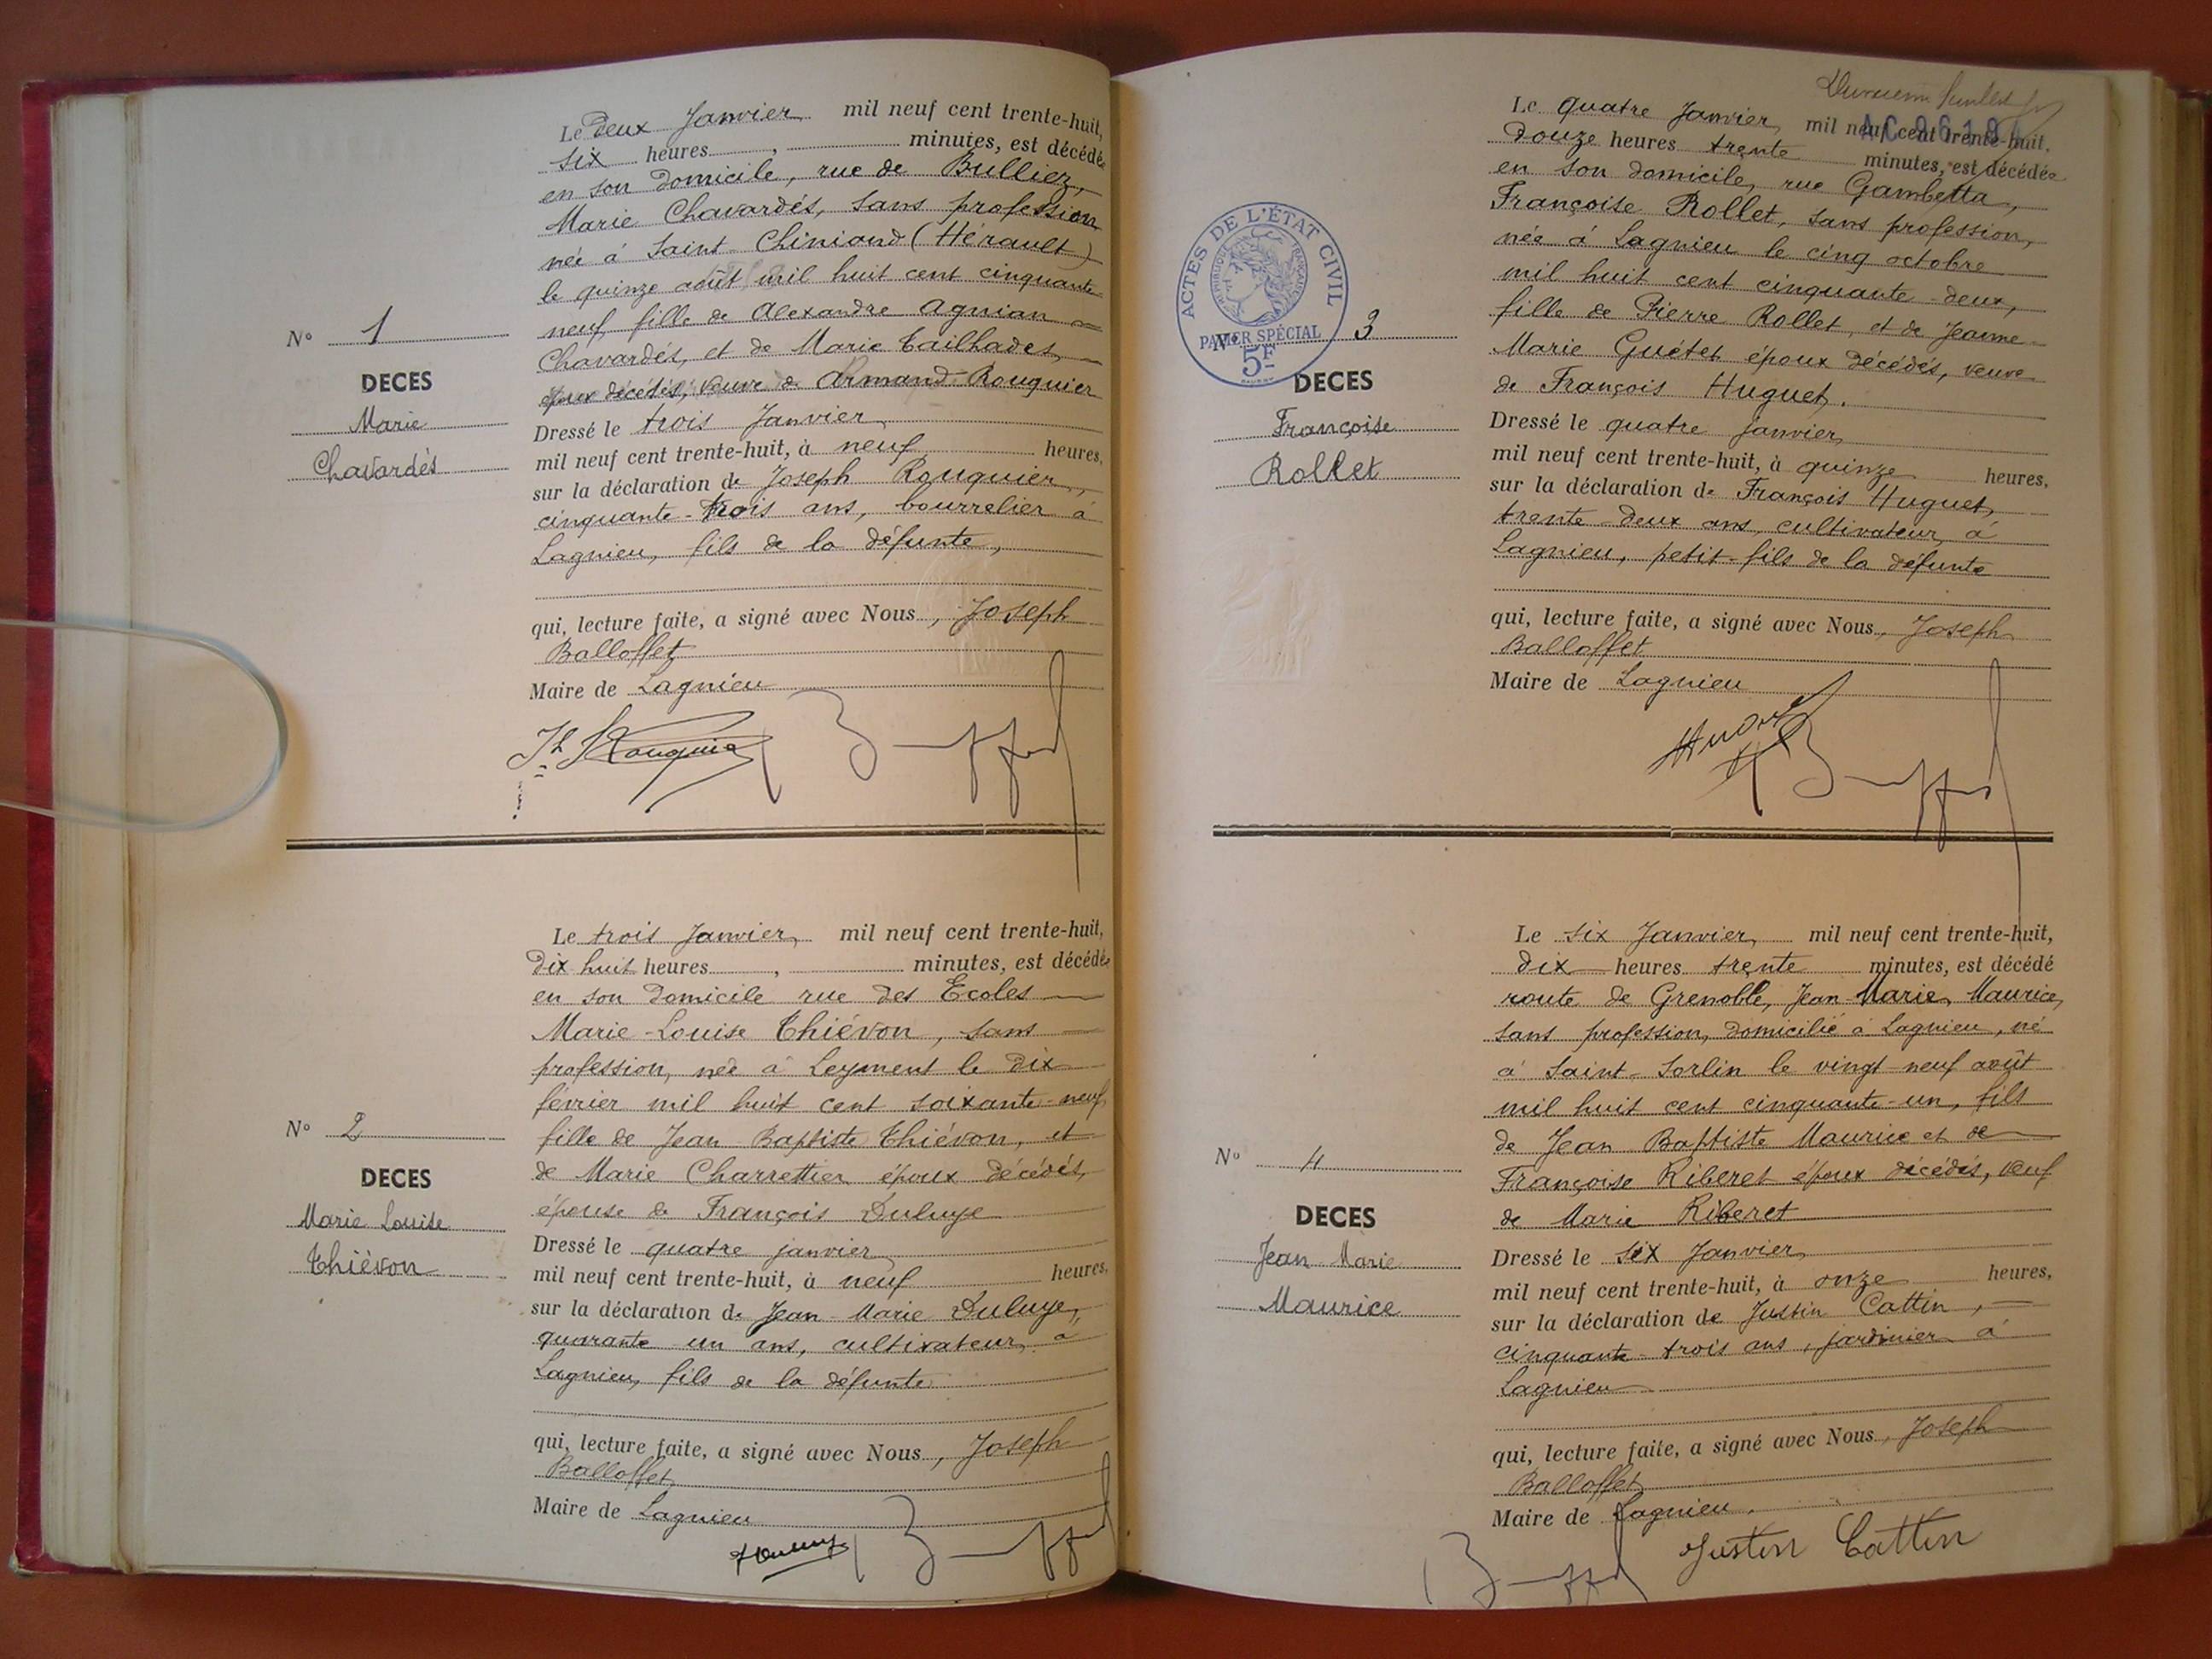 Le Deux Janvier mil neuf cent trente-huit,
six heures , minutes, est décédée
en son domicile, rue de Bulliez,
Marie Chavardès, sans profession
née à Saint Chiniand (Hérault)
le quinze août mil huit cent cinquante
neuf, fille de Alexandre Agnian
Chavardès, et de Marie Tailhades,
époux décédés, veuve de Armand Rouquier
Nº 1
DECES
Marie
Chavardès
Dressé le trois Janvier
mil neuf cent trente-huit, à neuf heures,
sur la déclaration de Joseph Rouquier,
cinquante-trois ans, bourrelier à
Lagnieu, fils de la défunte,
qui, lecture faite, a signé avec Nous, Joseph
Balloffet
Maire de Lagnieu
Jh Rouquier
Le trois Janvier mil neuf cent trente-huit,
Dix huit heures , minutes, est décédée
en son domicile rue des Ecoles
Marie-Louise Thiévon, sans
profession, née à Leyment le dix
février mil huit cent soixante-neuf
fille de Jean Baptiste Thiévon, et
de Marie Charrettier époux décédés,
épouse de François Duluye
Nº 2
DECES
Marie Louise
Thiévon
Dressé le quatre janvier
mil neuf cent trente-huit, à neuf heures,
sur la déclaration de Jean-Marie Duluye,
quarante un ans, cultivateur, à
Lagnieu, fils de la défunte
qui, lecture faite, a signé avec Nous, Joseph
Balloffet
Maire de Lagnieu
Le quatre Janvier mil neuf cent trente-huit,
douze heures trente minutes, est décédée
en son domicile, rue Gambetta,
Françoise Rollet, sans profession,
née à Lagnieu le cinq octobre
mil huit cent cinquante-deux,
fille de Pierre Rollet, et de Jeanne-
Marie Guétet époux décédés, veuve
de François Huguet.
ACTES DE L'ÉTAT CIVIL
RÉPUBLIQUE FRANÇAISE
PAPIER SPÉCIAL
5F
Nº 3
DECES
Françoise
Rollet
Dressé le quatre janvier
mil neuf cent trente-huit, à quinze heures,
sur la déclaration de François Huguet,
trente-deux ans, cultivateur, à
Lagnieu, petit-fils de la défunte
qui, lecture faite, a signé avec Nous, Joseph
Balloffet
Maire de Lagnieu
Le six Janvier, mil neuf cent trente-huit,
dix heures trente minutes, est décédé
route de Grenoble, Jean-Marie Maurice,
sans profession, domicilié à Lagnieu, né
à Saint-Sorlin le vingt-neuf août
mil huit cent cinquante-un, fils
de Jean Baptiste Maurice et de
Françoise Riberet époux décédés, veuf
de Marie Riberet
Nº 4
DECES
Jean Marie
Maurice
Dressé le six Janvier
mil neuf cent trente-huit, à onze heures,
sur la déclaration de Justin Cattin,
cinquante-trois ans, jardinier à
Lagnieu
qui, lecture faite, a signé avec Nous, Joseph
Balloffet
Maire de Lagnieu.
Justin Cattin